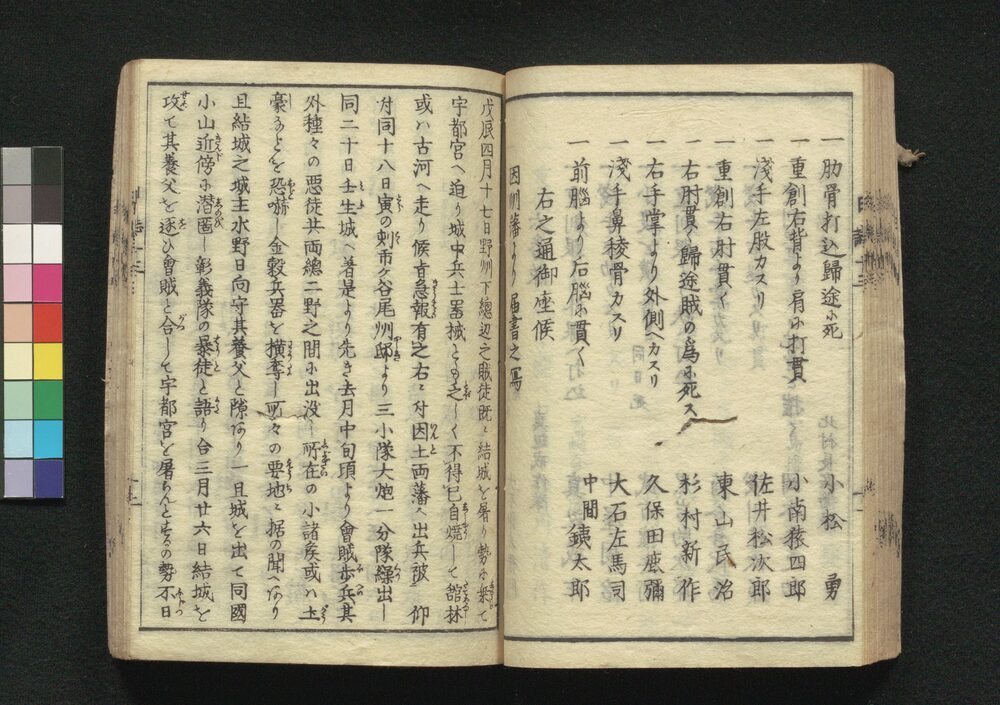 一肋骨打込歸途ニ死 小松 勇
一重創右背より肩ニ打貫 小南猿四郎
一淺手左股カスリ 佐井松次郎
一重創右肘貫く 東山民治
一右肘貫ク歸途賊の為ニ死ス 杉村新作
一右手掌より外側ヘカスリ 久保田鹿彌
一淺手鼻稜骨カスリ 大石左馬司
一前腦より后腦ニ貫く 中間銕太郎
右之通御座候
因州藩より届書之寫
戊辰四月十七日野州下總辺之賊徒既ニ結城を屠り勢ニ乗て
宇都宮へ迫り城中兵士器械とも乏しく不得已自焼して舘林
或ハ古河へ走り候旨急報有之右ニ付因土両藩へ出兵被 仰
付同十八日寅の刻市ヶ谷尾州邸より三小隊大炮一分隊繰出し
同二十日壬生城へ着是より先き去月中旬頃より會賊歩兵其
外種々の悪徒共両總二野之間に出没し所在の小諸矦或ハ土
豪などを恐嚇し金穀兵器を横奪し所々の要地ニ据の聞へあり
且結城之城主水野日向守其養父と隙あり一旦城を出て同國
小山近傍ニ潜匿し彰義隊の暴徒と語り合三月廿六日結城を
攻て其養父を逐ひ會賊と合して宇都宮を屠らんとするの勢不日